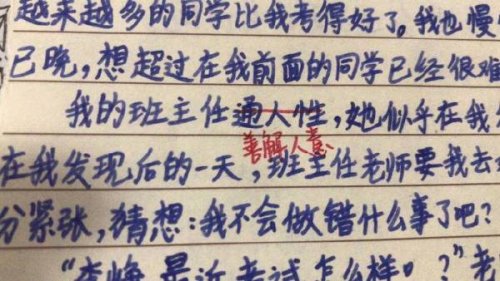 越来越多的同学比我考得好了。我也慢
已晚,想超过在我前面的同学已经很难
我的班主任通人性,她似乎在我
善解人意
在我发现后的一天,班主任老师要我去
分紧张,猜想:我不会做错什么事了吧?
最近考试怎么样。?"老